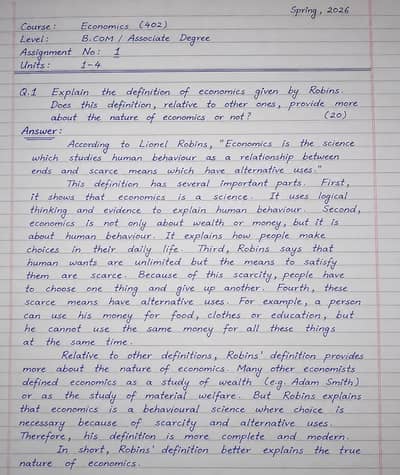 Spring, 2026
Course: Economics (402)
Level: B.COM / Associate Degree
Assignment No: 1
Units: 1-4
Q.1 Explain the definition of economics given by Robins.
Does this definition, relative to other ones, provide more
about the nature of economics or not? (20)
Answer:
According to Lionel Robins, "Economics is the science
which studies human behaviour as a relationship between
ends and scarce means which have alternative uses."
This definition has several important parts. First,
it shows that economics is a science. It uses logical
thinking and evidence to explain human behaviour. Second,
economics is not only about wealth or money, but it is
about human behaviour. It explains how people make
choices in their daily life. Third, Robins says that
human wants are unlimited but the means to satisfy
them are scarce. Because of this scarcity, people have
to choose one thing and give up another. Fourth, these
scarce means have alternative uses. For example, a person
can use his money for food, clothes or education, but
he cannot use the same money for all these things
at the same time.
Relative to other definitions, Robins' definition provides
more about the nature of economics. Many other economists
defined economics as a study of wealth (e.g. Adam Smith)
or as the study of material welfare. But Robins explains
that economics is a behavioural science where choice is
necessary because of scarcity and alternative uses.
Therefore, his definition is more complete and modern.
In short, Robins' definition better explains the true
nature of economics.